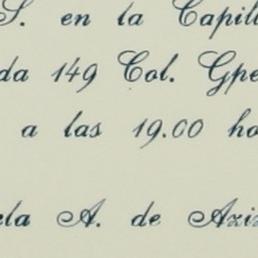 S. en la Capill
da 149 Col. Gpe
a las 19.00 ho
ela A. de Aziz